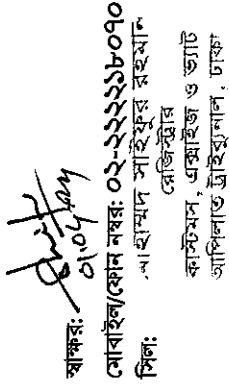 স্বাক্ষর:
মোবাইল/ফোন নম্বর: ০২-২২২২১৮০৭০
সিল:
মোহাম্মদ সাইফুর রহমান
রেজিস্ট্রার
কাস্টমস, এক্সাইজ ও ভ্যাট
আপিলাত ট্রাইব্যুনাল, ঢাকা